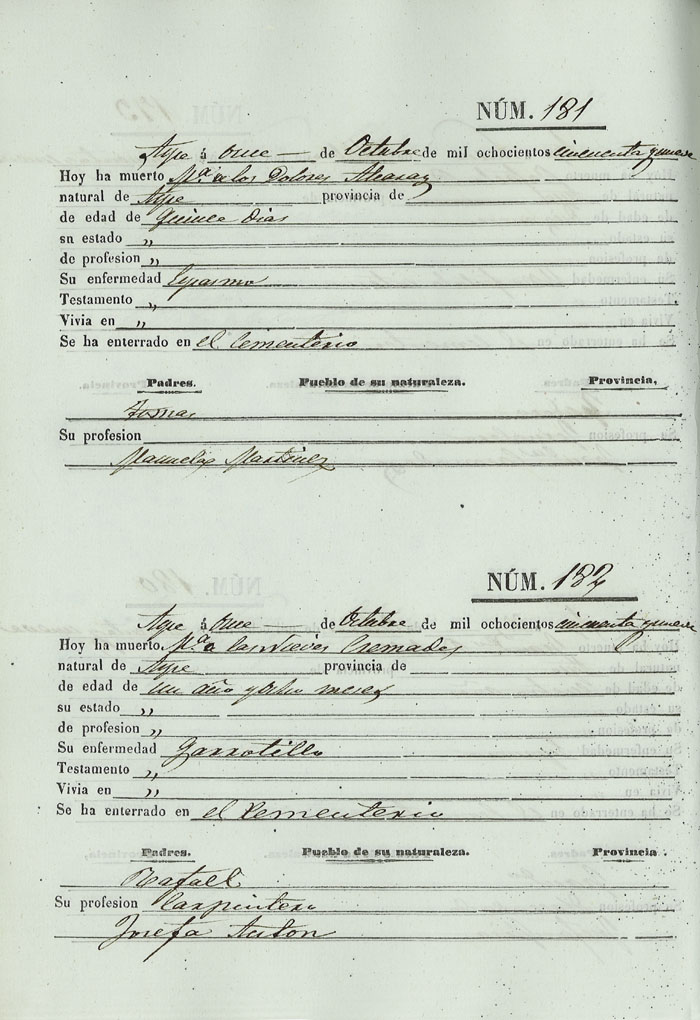 NÚM. 181
Aspe á once de Octubre de mil ochocientos cincuenta y nueve
Hoy ha muerto Mª. de los Dolores Alcaraz
natural de Aspe provincia de
de edad de quince dias
su estado „
de profesion „
Su enfermedad Espasmo
Testamento „
Vivia en „
Se ha enterrado en el Cementerio
Padres. Pueblo de su naturaleza. Provincia,
Tomas
Su profesion
Manuela Martinez
NÚM. 182
Aspe á once de Octubre de mil ochocientos cincuenta y nueve
Hoy ha muerto Mª de las Nieves Cremades
natural de Aspe provincia de
de edad de un año y ocho meses
su estado „
de profesion „
Su enfermedad Garrotillo
Testamento „
Vivia en „
Se ha enterrado en el Cementerio
Padres. Pueblo de su naturaleza. Provincia.
Rafael
Su profesion Carpintero
Josefa Anton